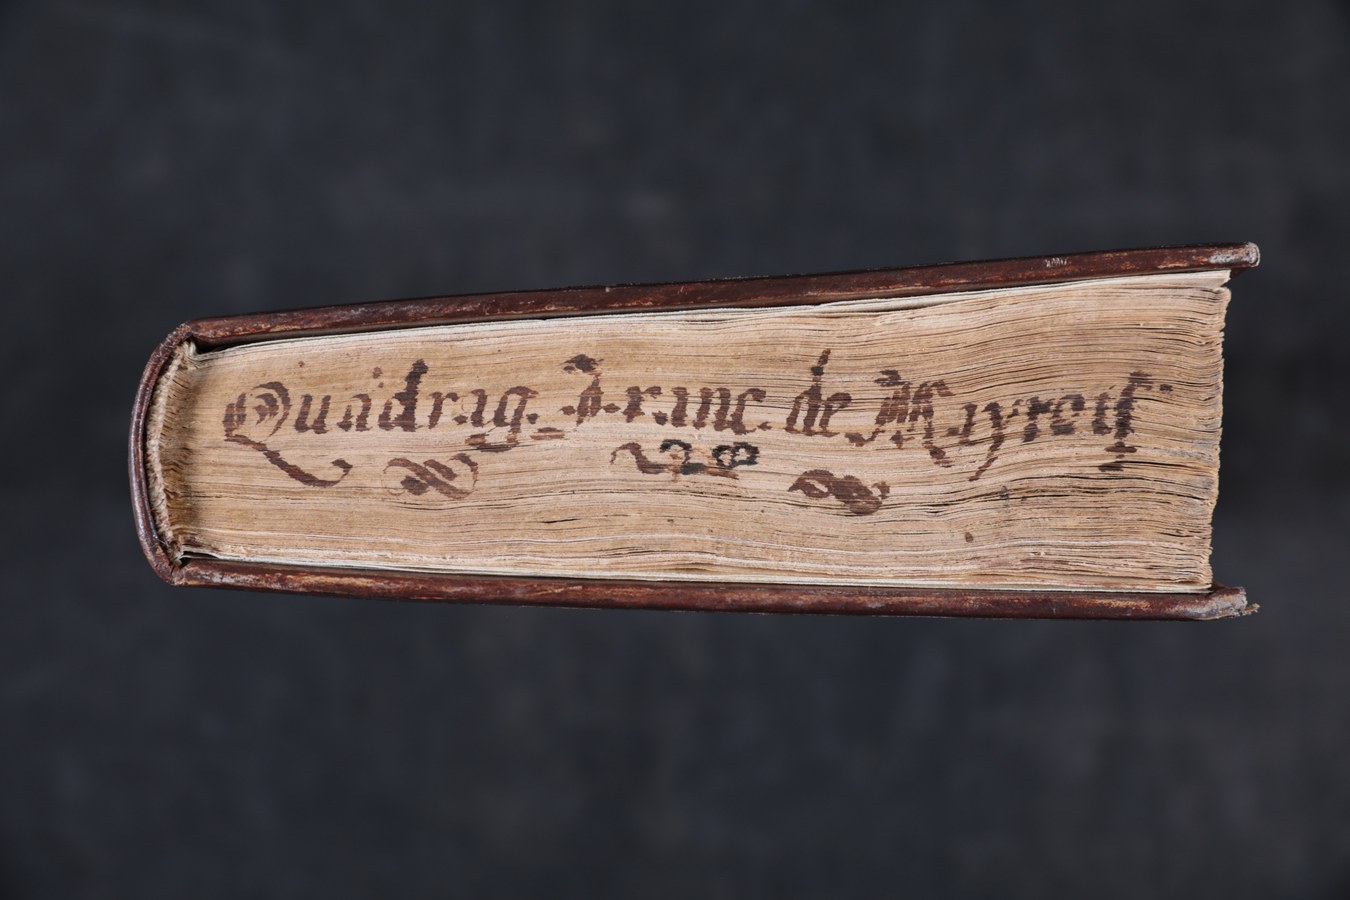 Quadrag. Franc. de Mayroıs
28